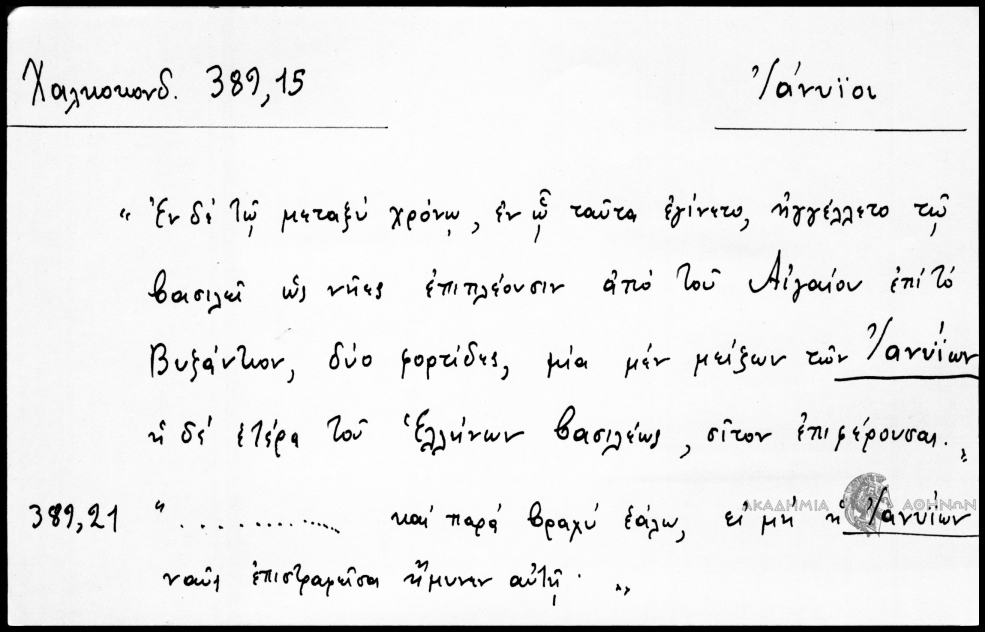 Χαλκοκονδ. 389,15
Ἰανυΐοι
“ Ἐν δὲ τῷ μεταξὺ χρόνῳ, ἐν ᾧ ταῦτα ἐγίνετο, ἠγγέλλετο τῷ
βασιλεῖ ὡς νῆες ἐπιπλέουσιν ἀπὸ τοῦ Αἰγαίου ἐπὶ τὸ
Βυζάντιον, δύο φορτίδες, μία μὲν μείζων τῶν Ἰανυΐων
ἡ δὲ ἑτέρα τοῦ Ἑλλήνων βασιλέως, σῖτον ἐπιφέρουσαι. „
389,21 “ .............. καὶ παρὰ βραχὺ ἑάλω, εἰ μὴ ἡ Ἰανυΐων
ναῦς ἐπιστραφεῖσα ἤμυνεν αὐτῇ. „
ΑΚΑΔΗΜΙΑ ΑΘΗΝΩΝ